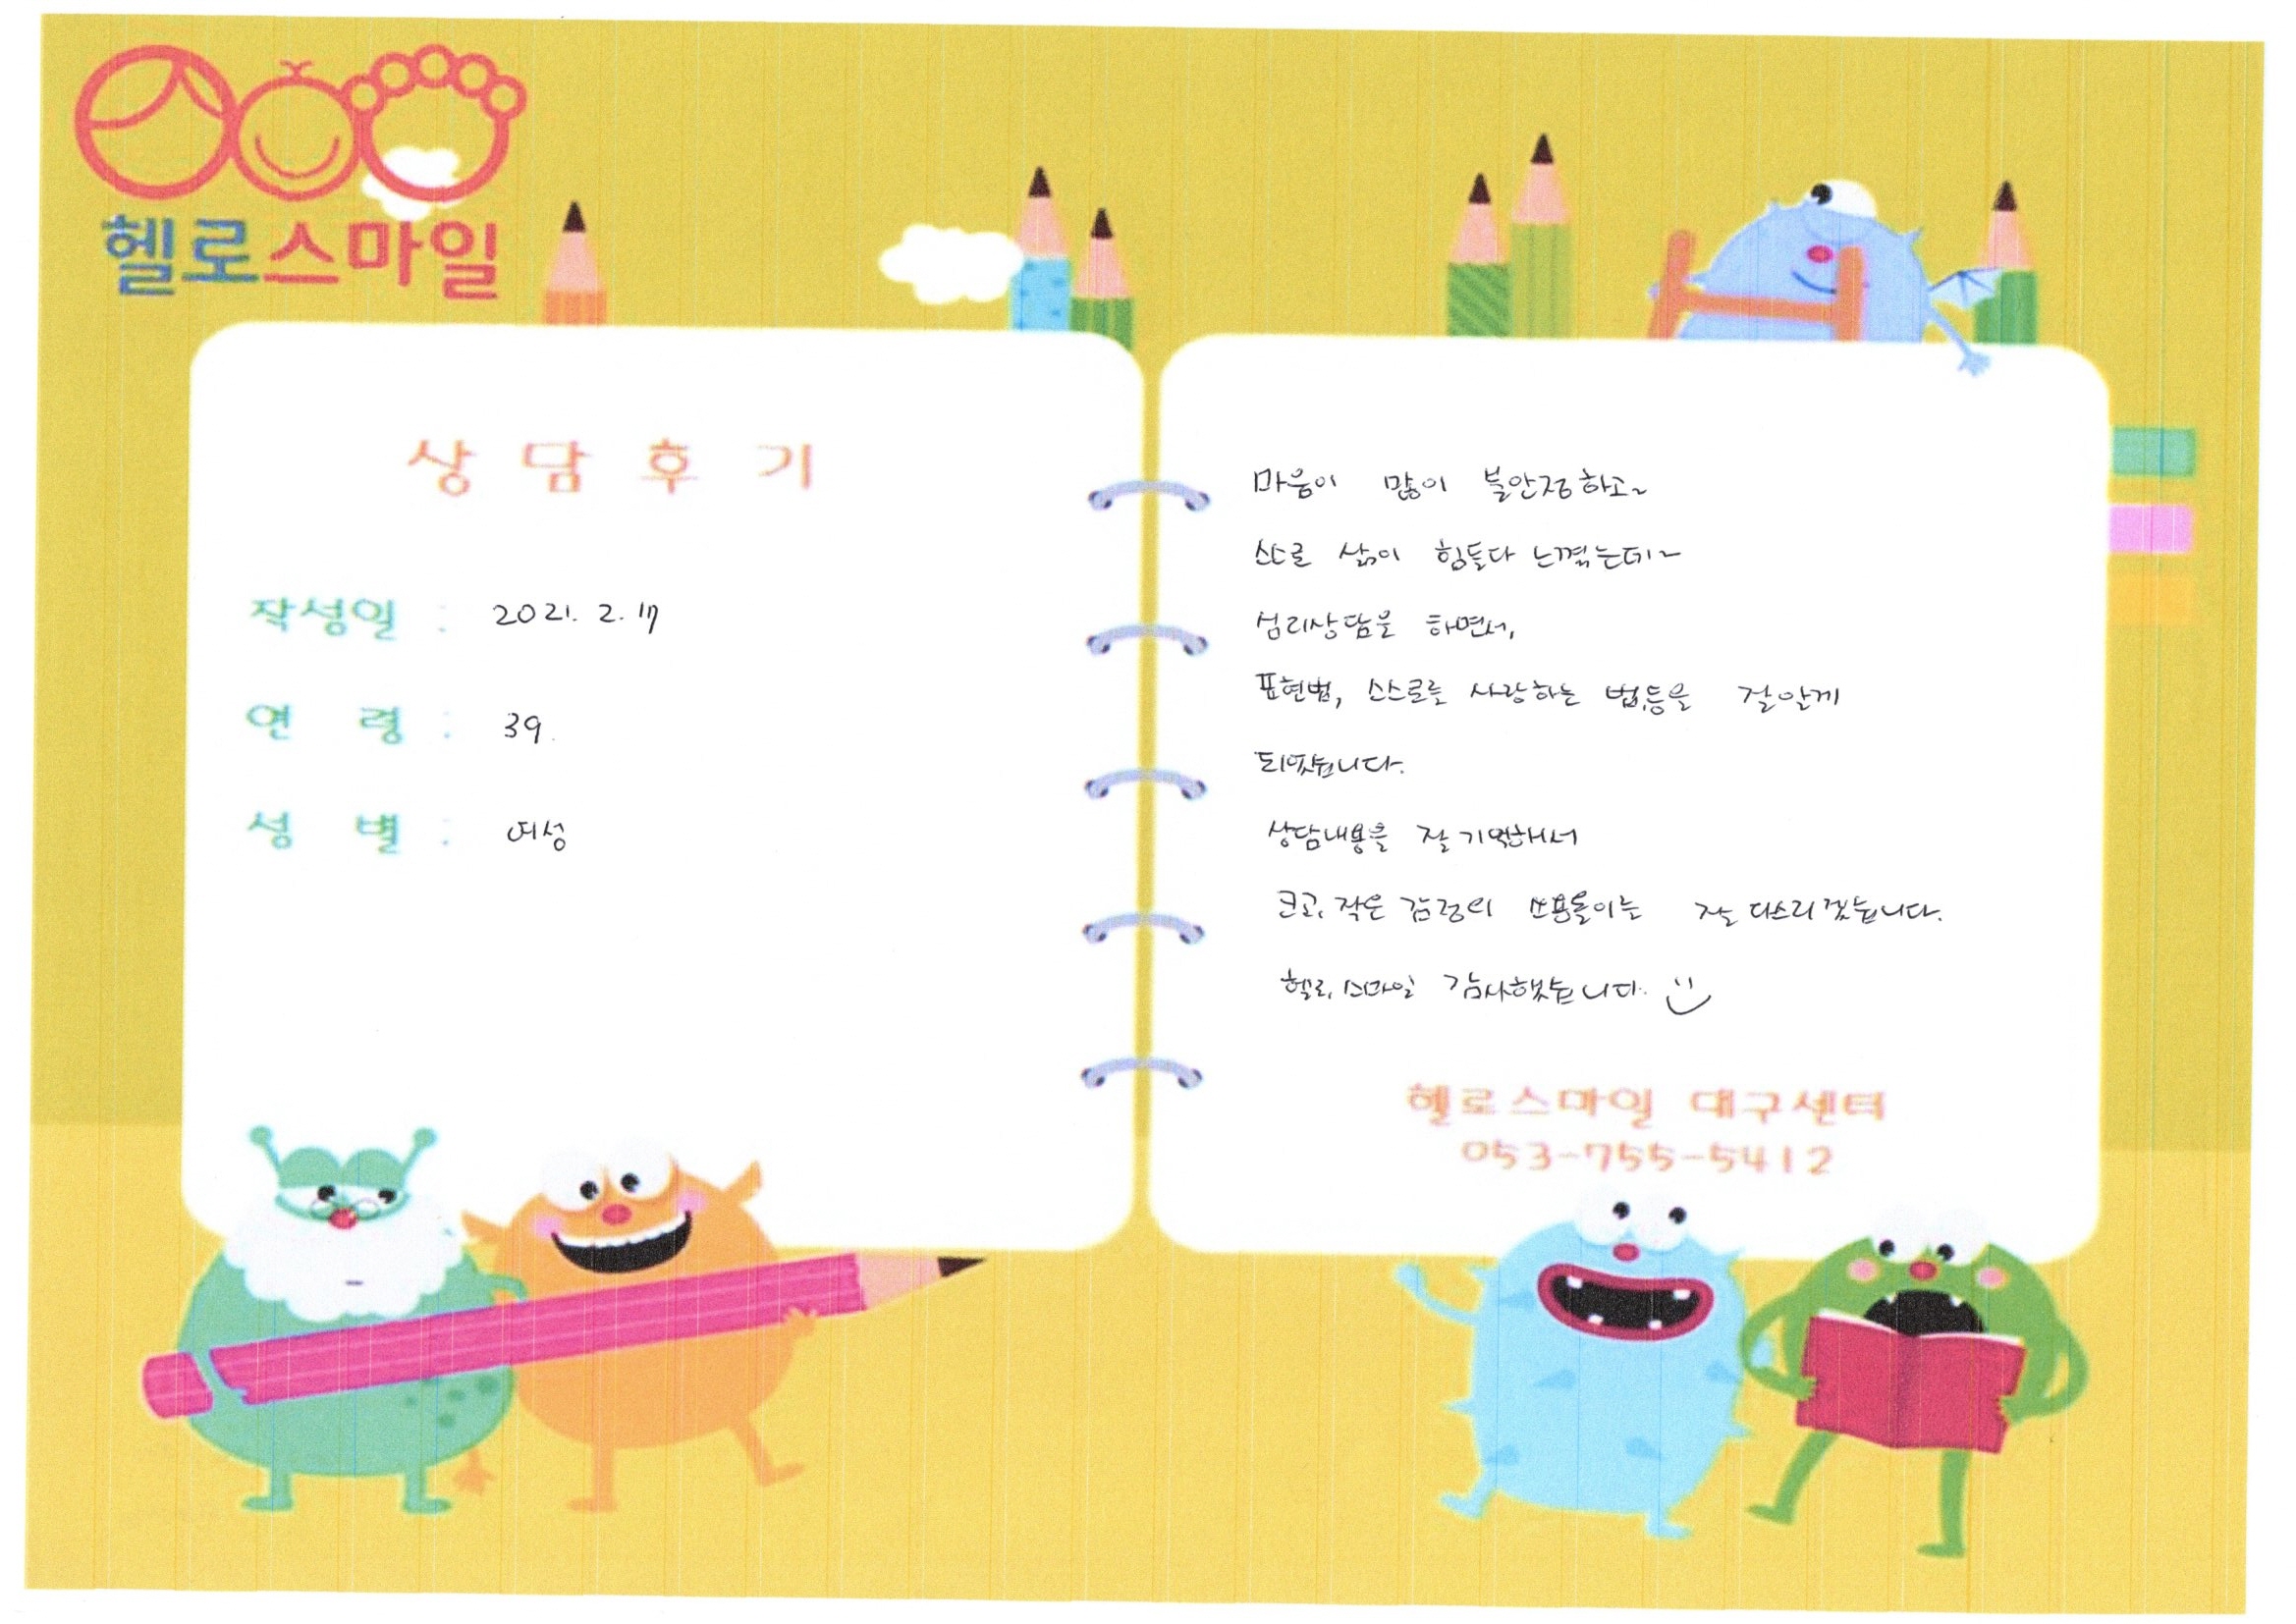 헬로스마일
상담후기
작성일 : 2021. 2. 17
연 령 : 39.
성 별 : 여성
마음이 많이 불안정하고~
스스로 삶이 힘들다 느꼈는데~
심리상담을 하면서,
표현법, 스스로를 사랑하는 법,등을 잘알게
되었습니다.
상담내용을 잘 기억해서
크고, 작은 감정의 소용돌이는 잘 다스리겠습니다.
헬로, 스마일 감사했습니다.
헬로스마일 대구센터
053-755-5412